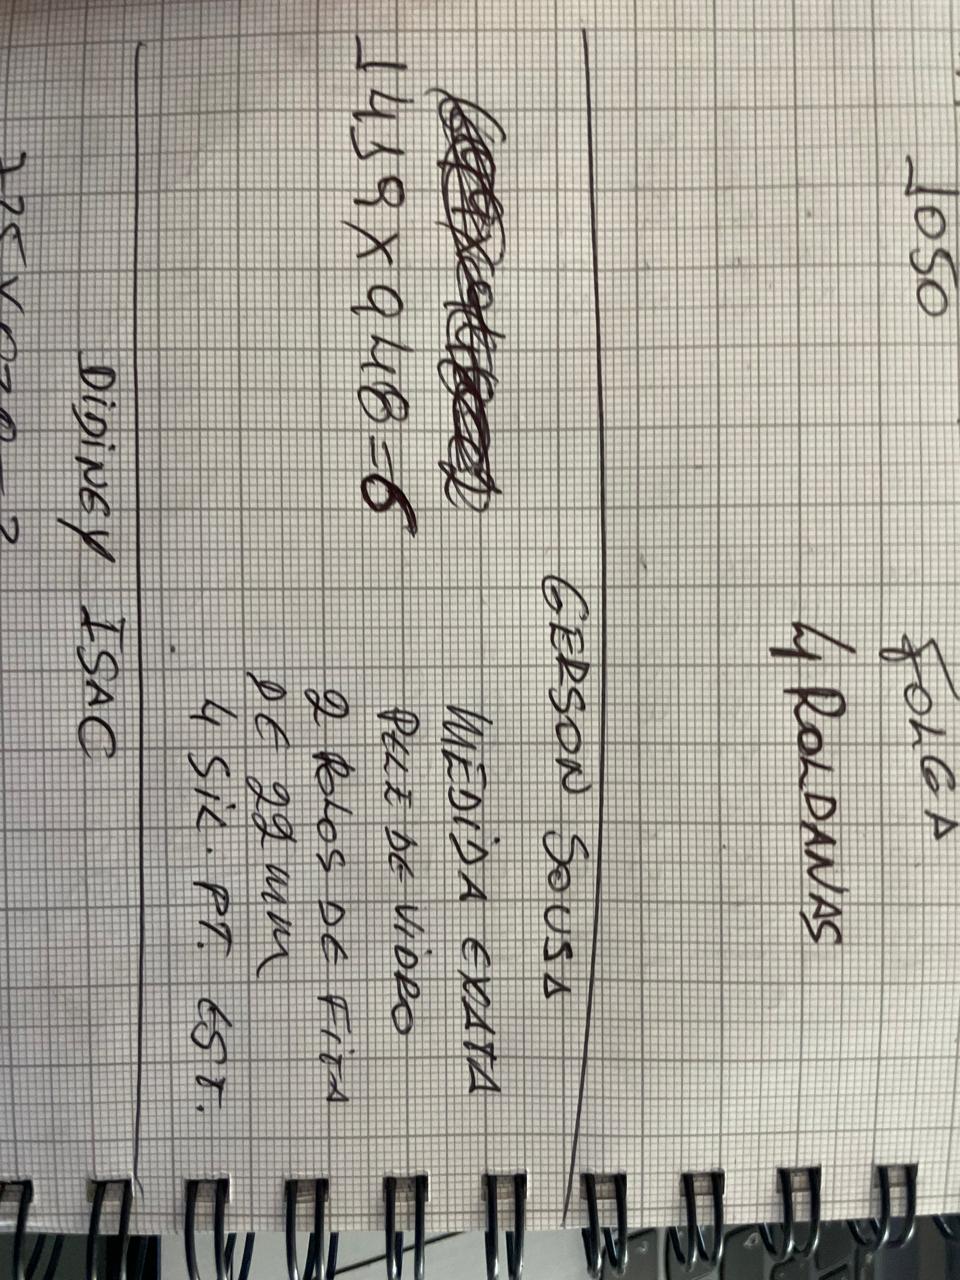 1050
FOLGA
4 ROLDANAS
GERSON SOUSA
MEDIDA EXATA
1459 X 948 = 6
PELE DE VIDRO
2 ROLOS DE FITA
DE 22 mm
4 SIL. PT. EST.
DIDINEY ISAC